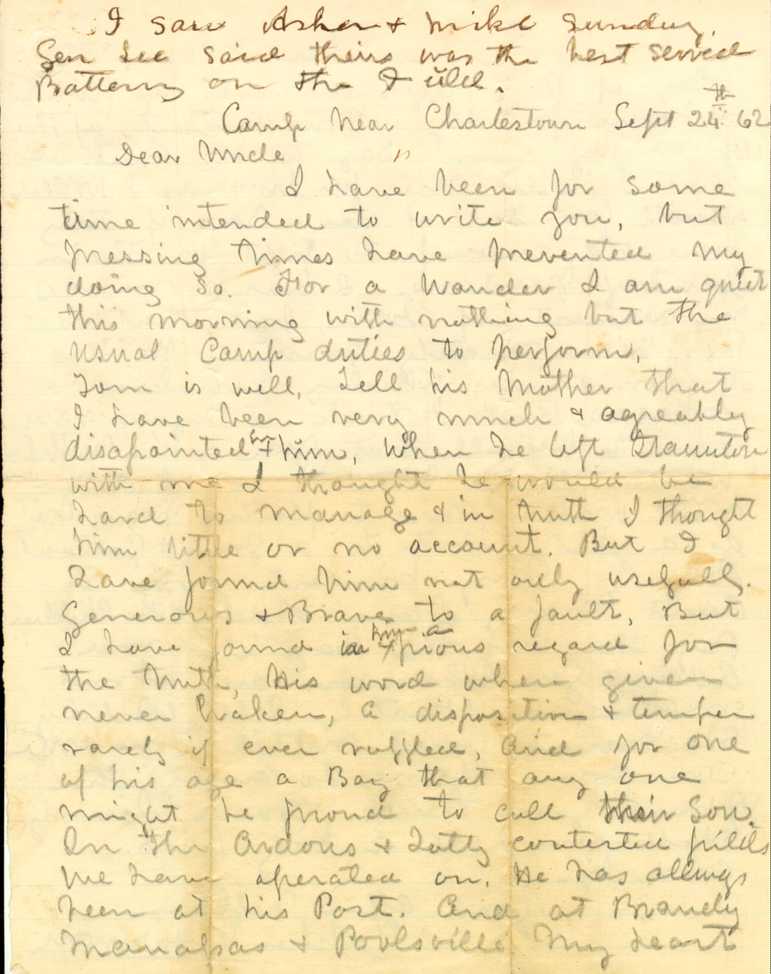 I saw Asher & Mike Sunday.
Gen Lee said theirs was the best served
Battery on the Field.
Camp Near Charlestown Sept 24th 62
Dear Uncle
I have been for some
time intended to write you, but
pressing times have prevented my
doing so. For a Wonder I am quiet
this morning with nothing but the
usual Camp duties to perform,
Tom is well, Tell his Mother that
I have been very much & agreably
disapointed in him, When he left Staunton
with me I thought he would be
hard to manage & in truth I thought
him little or no account. But I
have found him not only usefull,
Generous & Brave to a fault, But
I have found in him a pious regard for
the truth, His word when given
never broken, a disposition & temper
rarely if ever ruffled, And for one
of his age a Boy that any one
might be proud to call their Son.
On the Ardous & hotly contested fields
we have operated on, He has allways
been at his Post. And at Brandy
Manassas & Poolsville My heart